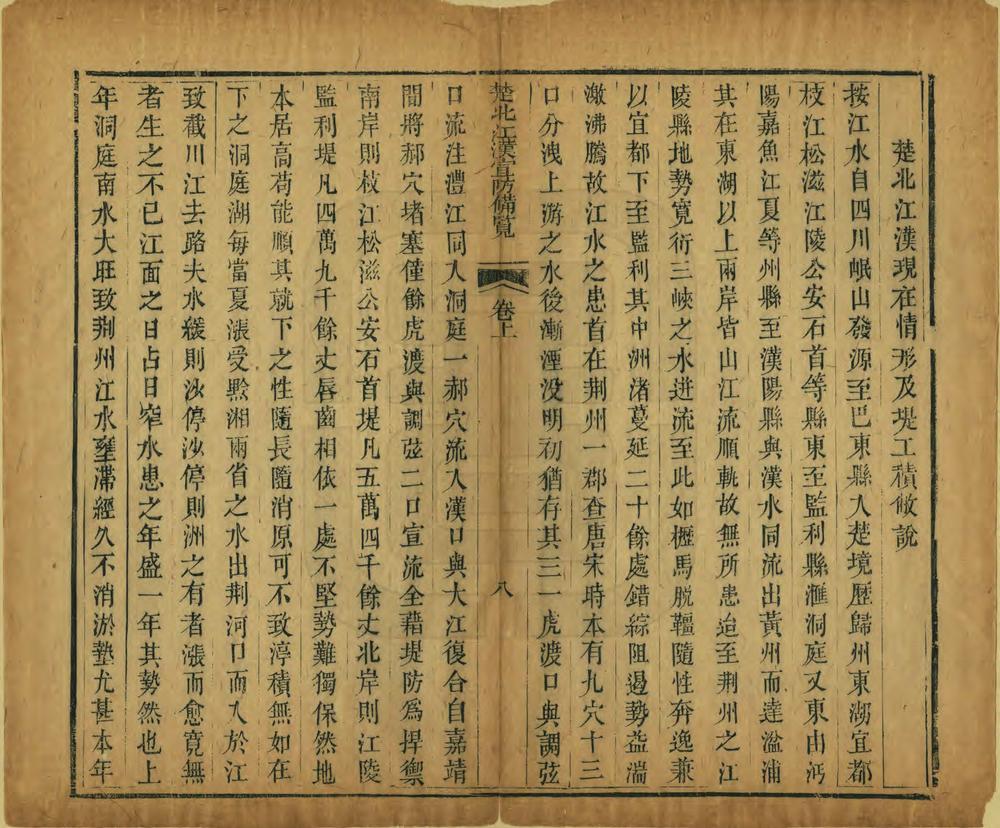 楚北江漢現在情形及堤工積倣說
按江水自四川岷山發源至巴東縣入楚境歷歸州東湖宜都
枝江松滋江陵公安石首等縣東至監利縣滙洞庭又東由沔
陽嘉魚江夏等州縣至漢陽縣與漢水同流出黃州而達湓浦
其在東湖以上兩岸皆山江流順軌故無所患迨至荆州之江
陵縣地勢寬衍三峽之水迸流至此如櫪馬脫韁隨性奔逸兼
以宜都下至監利其中洲渚蔓延二十餘處錯綜阻遏勢益湍
激沸騰故江水之患首在荆州一郡查唐宋時本有九穴十三
口分洩上游之水後漸湮没明初猶存其三一虎渡口與調弦
楚北江漢宣防備覽
卷上
八
口流注澧江同入洞庭一郝穴流入漢口與大江復合自嘉靖
間將郝穴堵塞僅餘虎渡與調弦二口宣流全藉堤防爲捍禦
南岸則枝江松滋公安石首堤凡五萬四千餘丈北岸則江陵
監利堤凡四萬九千餘丈唇齒相依一處不堅勢難獨保然地
本居高苟能順其就下之性隨長隨消原可不致渟積無如在
下之洞庭湖每當夏漲受黔湘兩省之水出荆河口而入於江
致截川江去路夫水緩則沙停沙停則洲之有者漲而愈寬無
者生之不已江面之日占日窄水患之年盛一年其勢然也上
年洞庭南水大旺致荆州江水壅滯經久不消淤墊尤甚本年